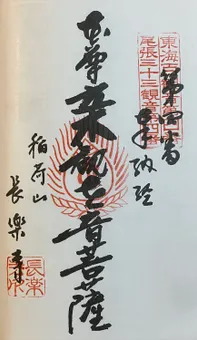 東海百
尾張三十三観音第四番
奉納経
本尊 観世音菩薩
稲荷山
長楽寺
長楽